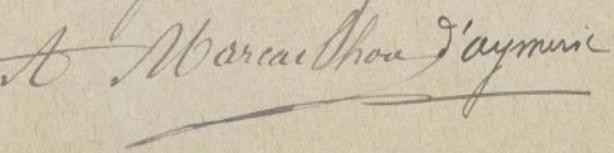 A Marcailhou d'aymeric